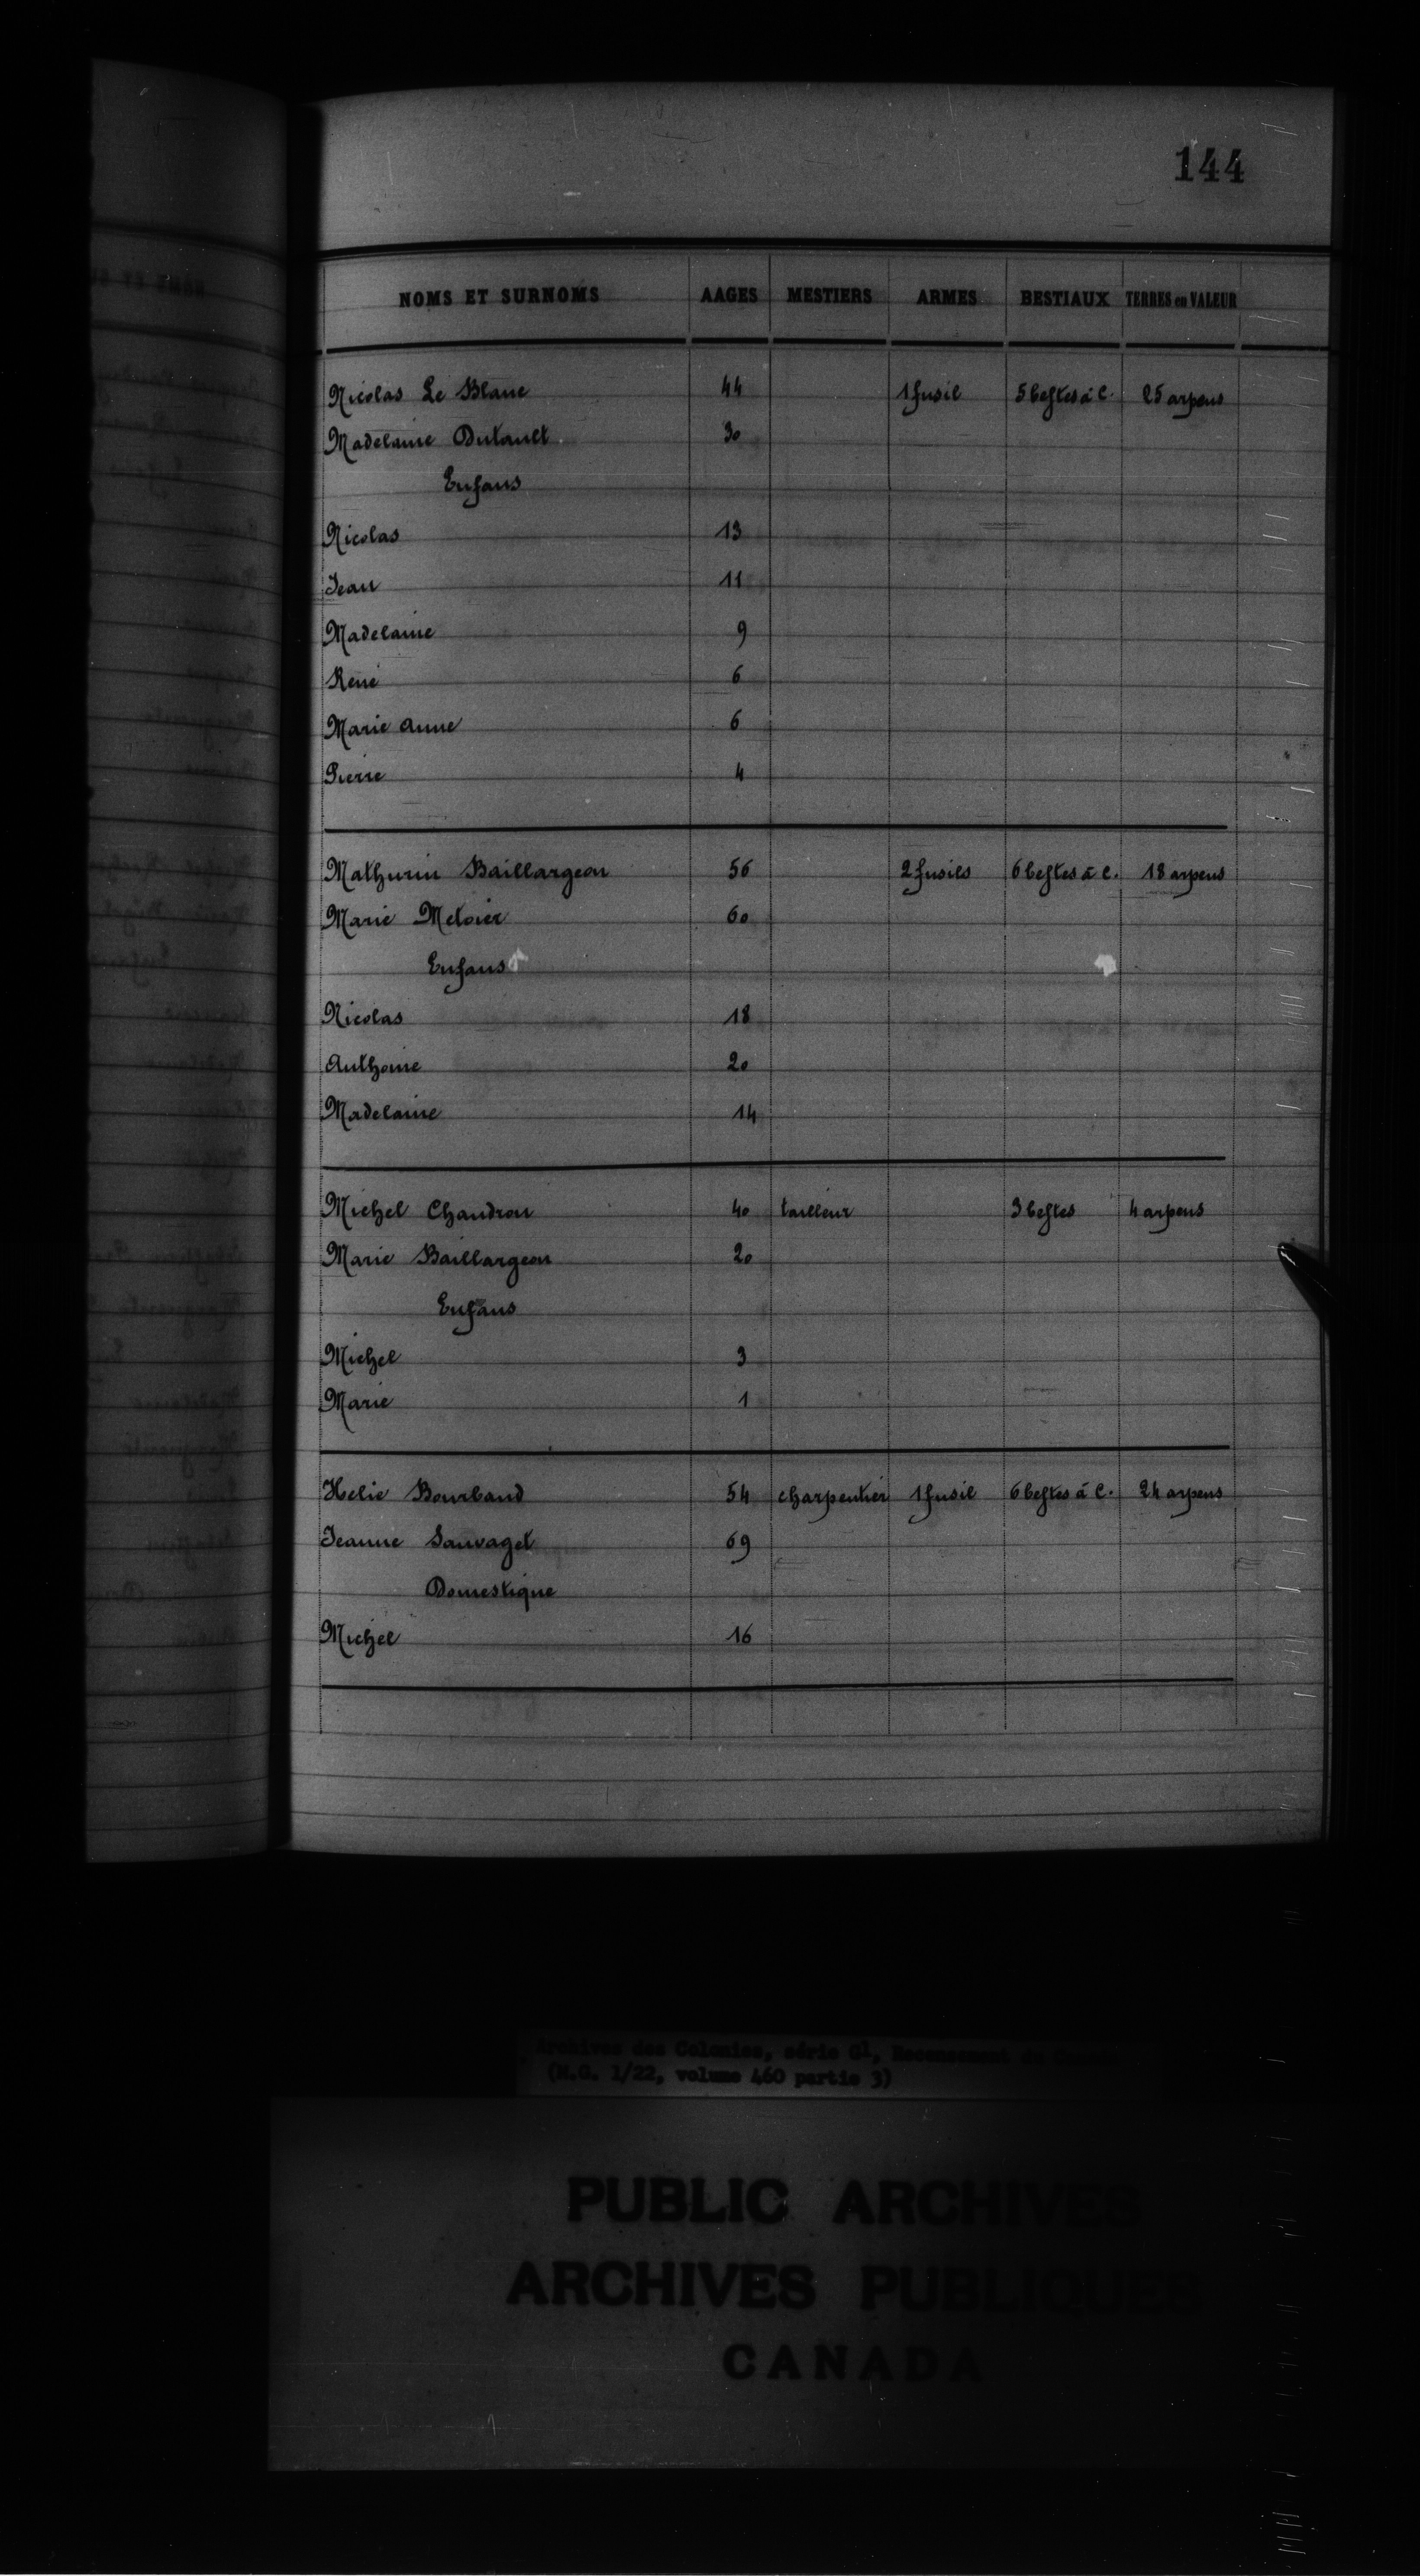 144
NOMS ET SURNOMS AAGES MESTIERS ARMES BESTIAUX TERRES en VALEUR
Nicolas Le Blanc 44 1 fusil 5 bestes à c. 25 arpens
Madelaine Dutault 30
Enfans
Nicolas 13
Jean 11
Madelaine 9
René 6
Marie Anne 6
Pierre 4
Mathurin Baillargeon 56 2 fusils 6 bestes à c. 18 arpens
Marie Metoier 60
Enfans
Nicolas 18
Anthoine 20
Madelaine 14
Michel Chaudron 40 tailleur 3 bestes 4 arpens
Marie Baillargeon 20
Enfans
Michel 3
Marie 1
Helie Bourbaud 54 charpentier 1 fusil 6 bestes à c. 24 arpens
Jeanne Sauvaget 69
Domestique
Michel 16
Archives des Colonies, série G1, Recensement du Canada
(M.G. 1/22, volume 460 partie 3)
PUBLIC ARCHIVES
ARCHIVES PUBLIQUES
CANADA